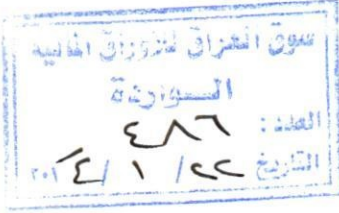 سوق العراق للأوراق المالية
الـــواردة
العدد : ٤٨٦
التاريخ ٢٢/ ١ /٢٠١٤